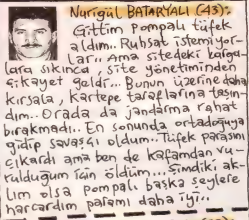 Nurigül BATARYALI (43):
Gittim Pompalı tüfek
aldım.. Ruhsat istemiyor-
lar.. Ama sitedeki karga-
lara sıkınca, site yönetiminden
şikayet geldi... Bunun üzerine daha
kırsala, kartepe taraflarına taşın-
dım.. Orada da jandarma rahat
bırakmadı.. En sonunda ortadoğuya
gidip savaşçı oldum.. Tüfek parasını
çıkardı ama ben de kafamdan vu-
rulduğum için öldüm... Şimdiki ak-
lım olsa pompalı başka şeylere
harcardım paramı daha iyi..